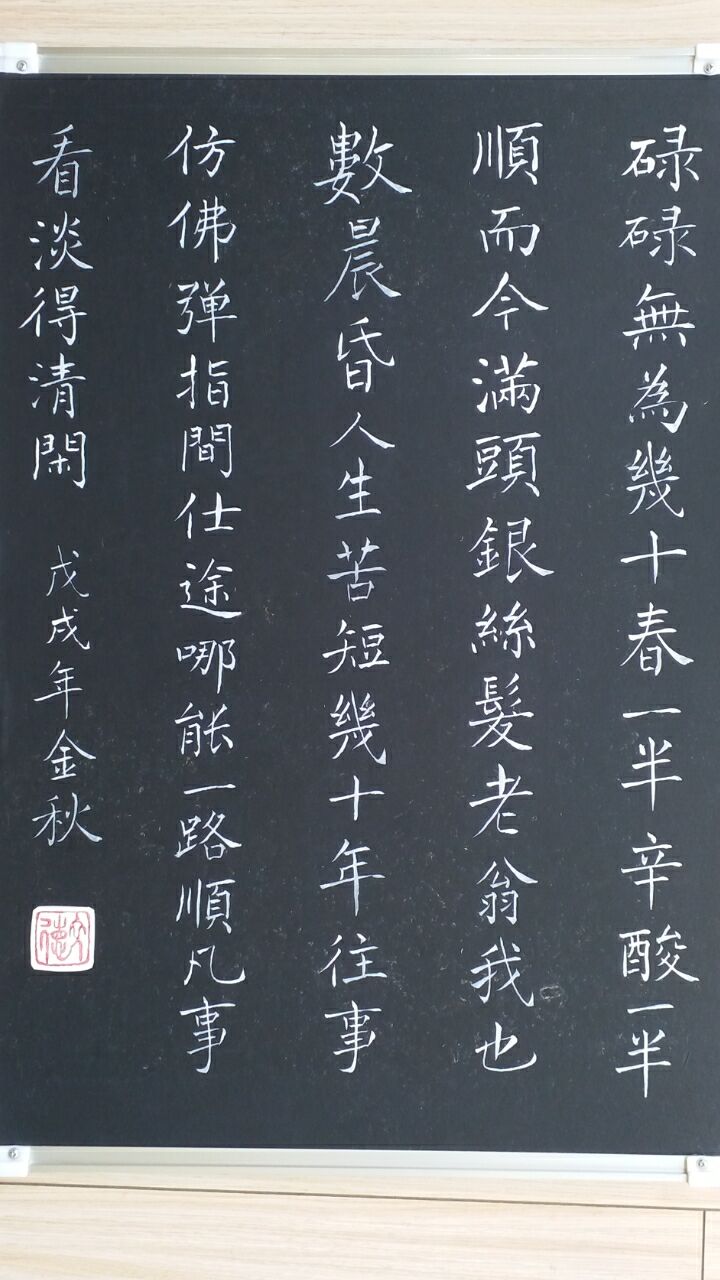 碌碌無為幾十春一半辛酸一半
順而今滿頭銀絲髮老翁我也
數晨昏人生苦短幾十年往事
仿佛彈指間仕途哪能一路順凡事
看淡得清閑
戊戌年金秋